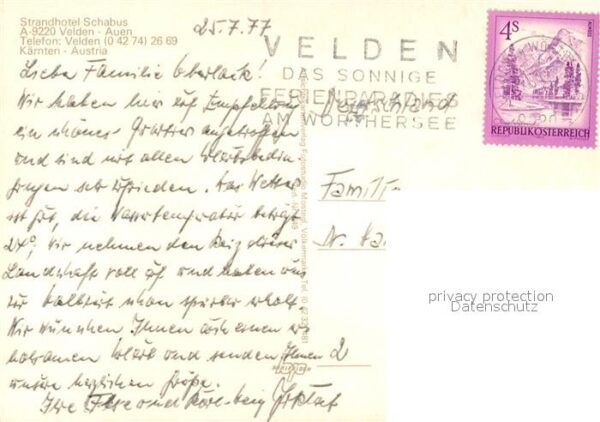 Strandhotel Schabus
A-9220 Velden - Auen
Telefon: Velden (0 42 74) 26 69
Kärnten - Austria
25.7.77
VELDEN
DAS SONNIGE
FERIENPARADIES
AM WÖRTHERSEE
4S
REPUBLIK ÖSTERREICH
Liebe Familie Oberlack!
Wir haben hier auf Empfehlung
ein schönes Quartier angetroffen
und sind mit allen
sehr zufrieden. Das Wetter
ist gut, die Wassertemperatur beträgt
24°. Wir nehmen den Reiz dieser
Landschaft voll auf und haben uns
zur Halbzeit schon spürbar erholt.
Wir wünschen Ihnen auch einen
erholsamen Urlaub und senden Ihnen
unsere herzlichen Grüße.
Ihre und Karl-Heinz
Deutschland
Famili
privacy protection
Datenschutz